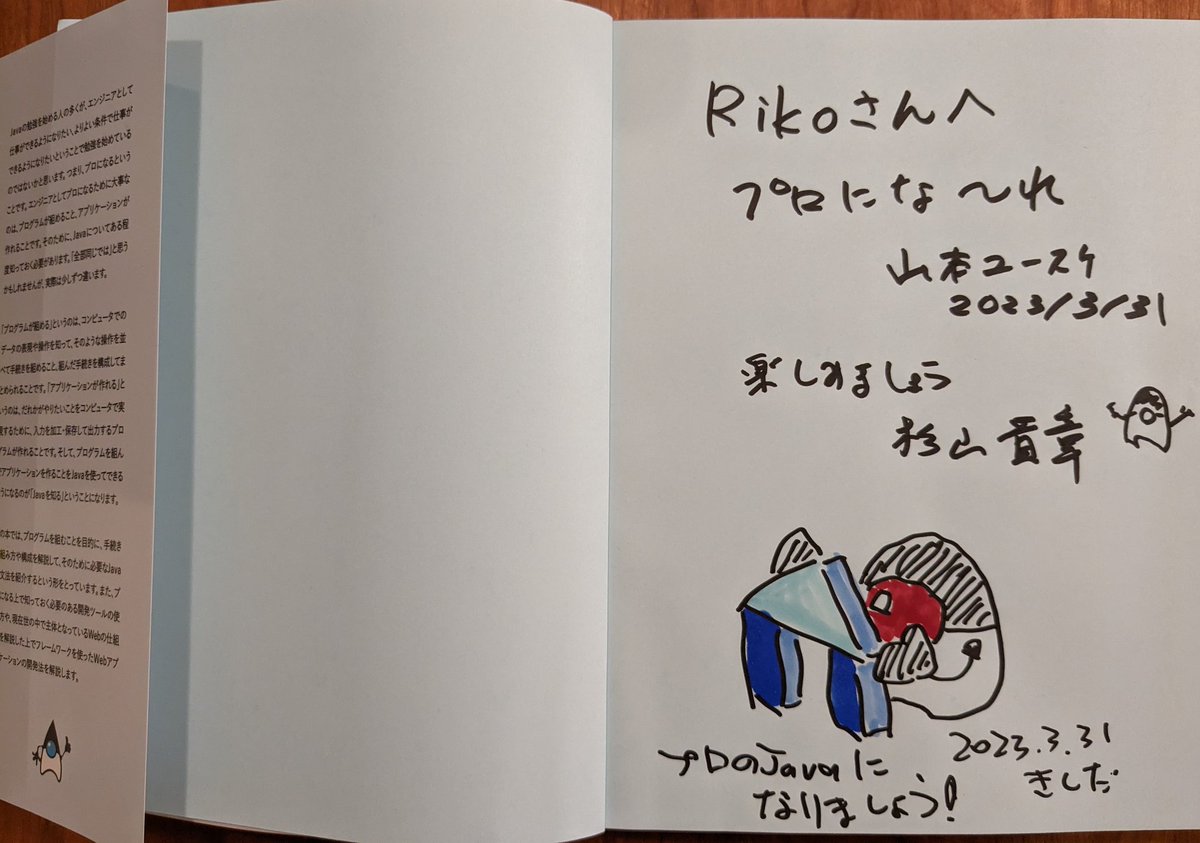 Javaの勉強を始める人の多くが、エンジニアとして
仕事ができるようになりたい、よりよい条件で仕事が
できるようになりたいということで勉強を始めている
のではないかと思います。つまり、プロになるという
ことです。エンジニアとしてプロになるために大事な
のは、プログラムが組めること、アプリケーションが
作れることです。そのために、Javaについてある程
度知っておく必要があります。「全部同じでは」と思う
かもしれませんが、実際は少しずつ違います。
「プログラムが組める」というのは、コンピュータでの
データの表現や操作を知って、そのような操作を並
べて手続きを組めること、組んだ手続きを構成してま
とめられることです。「アプリケーションが作れる」と
いうのは、だれかがやりたいことをコンピュータで実
現するために、入力を加工・保存して出力するプロ
グラムが作れることです。そして、プログラムを組ん
でアプリケーションを作ることをJavaを使ってできる
ようになるのが「Javaを知る」ということになります。
の本では、プログラムを組むことを目的に、手続き
組み方や構成を解説して、そのために必要なJava
文法を紹介するという形をとっています。また、プ
になる上で知っておく必要のある開発ツールの使
方や、現在世の中で主体となっているWebの仕組
を解説した上でフレームワークを使ったWebアプ
ケーションの開発法を解説します。
Rikoさんへ
プロにな〜れ
山本ユースケ
2023/3/31
楽しみましょう
杉山貴章
プロのJavaに
なりましょう!
2023.3.31
きしだ